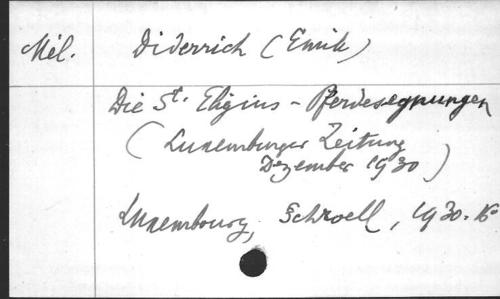 Mél. Diderrich (Emile)
Die St. Eligius - Pferdesegnungen
( Luxemburger Zeitung
Dezember 1930 )
Luxembourg, Schroell, 1930. 16°